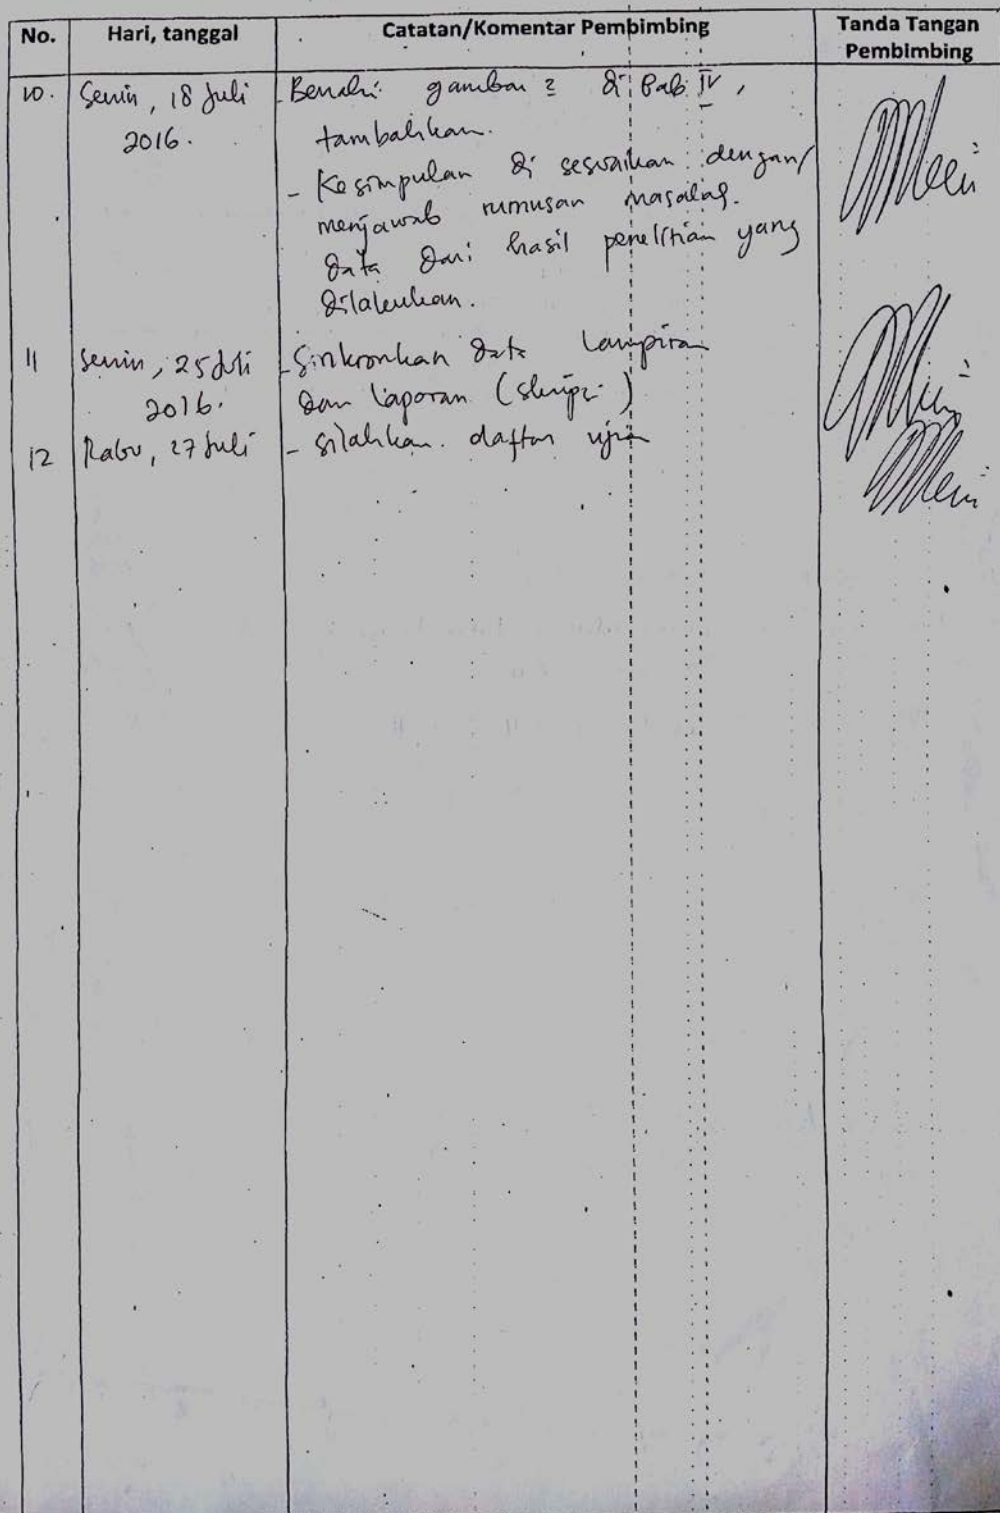 No. Hari, tanggal Catatan/Komentar Pembimbing Tanda Tangan Pembimbing
10. Senin, 18 Juli - Benahi gambar2 di Bab IV,
2016. tambahkan.
- Kesimpulan di sesuaikan dengan/
menjawab rumusan masalah.
data dari hasil penelitian yang
dilakukan.
11 Senin, 25 Juli - Sinkronkan data lampiran
2016. dan laporan (skripsi)
12 Rabu, 27 Juli - silahkan daftar ujian